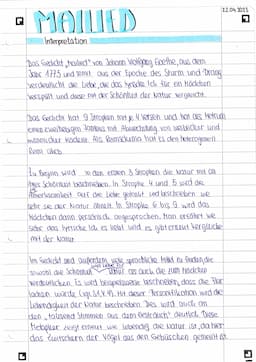 12.04.2023
MAILIED
Interpretation
Das Gedicht „Mailied" von Johann Wolfgang Goethe, aus dem
Jahr 1775 und somit aus der Epoche des Sturm und Drang
verdeutlicht die Liebe, die das lyrische Ich für ein Mädchen
verspürt und diese mit der Schönheit der Natur vergleicht.
Das Gedicht hat 9 Strophen mit je 4 Versen und hat als Metrum
einen zweihebigen Jambus mit Abwechslung von weiblicher und
männlicher Kadenz. Als Reimschema hat es den heterogenen
Reim abcb.
Zu Beginn wird in den ersten 3 Strophen die Natur mit all
ihrer Schönheit beschrieben. In Strophe 4 und 5 wird die
Aufmerksamkeit auf die Liebe gelenkt und beschrieben wie
sehr sie der Natur ähnelt. In Strophe 6 bis 9 wird das
Mädchen dann persönlich angesprochen. Man erfährt wie
sehr das lyrische Ich es liebt und es gibt erneut Vergleiche
mit der Natur.
Im Gedicht sind außerdem viele sprachliche Mittel zu finden, die
sowohl die Schönheit der Natur als auch die zum Mädchen
verdeutlichen. Es wird beispielsweise beschrieben, dass die Flur
lachen würde (vgl. S.1, V.4). Mit dieser Personifikation wird die
Lebendigkeit der Natur beschrieben. Dies wird auch an
den „tausend Stimmen aus dem Gesträuch" deutlich. Diese
Metapher zeigt erneut wie lebendig die Natur ist, da hier
das Zwitschern der Vögel aus den Gebüschen gemeint ist.